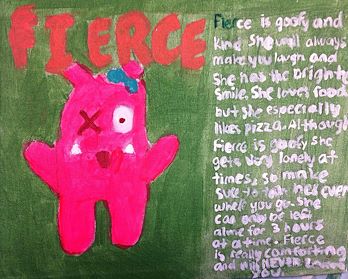 FIERCE
Fierce is goofy and
kind. She will always
make you laugh and
She has the bright
Smile. She loves food
but she especially
likes pizza. Although
Fierce is goofy she
gets very lonely at
times, so make
sure to take her ever
where you go. She
can only be left
alone for 3 hours
at a time. Fierce
is really comforting
and will NEVER
you